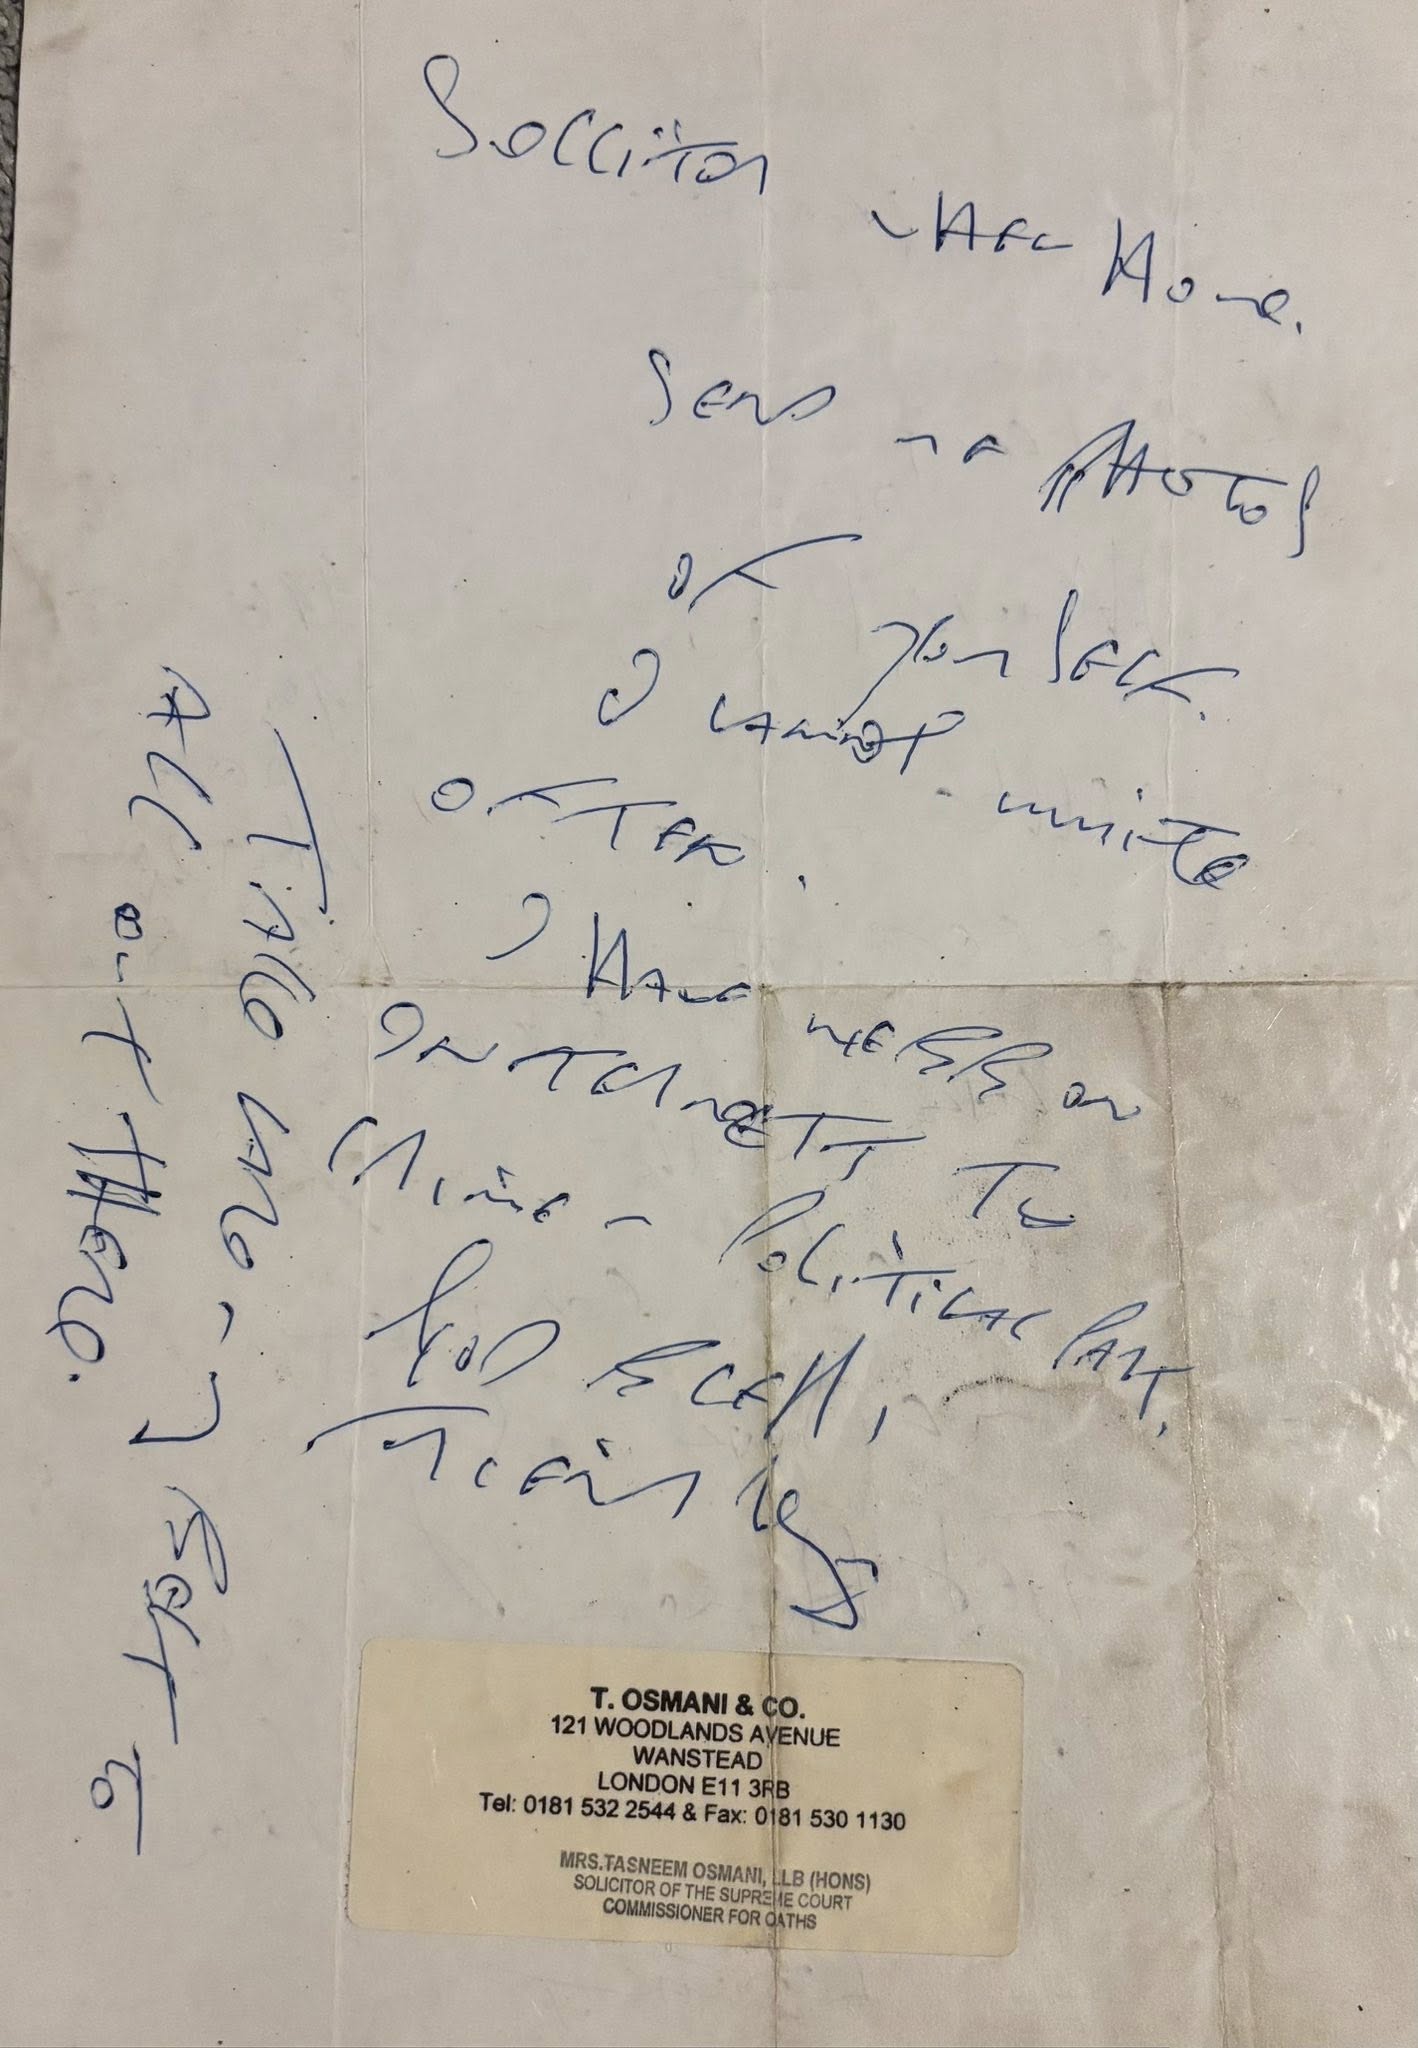 Sollitor when Home.
Send me Photos
of your Self.
I cannot write
often.
I Have webb on
Internett To
Crime - Political Part.
God Bless,
Friendly
Take care - L
All Home.
T. OSMANI & CO.
121 WOODLANDS AVENUE
WANSTEAD
LONDON E11 3RB
Tel: 0181 532 2544 & Fax: 0181 530 1130
MRS.TASNEEM OSMANI, LLB (HONS)
SOLICITOR OF THE SUPREME COURT
COMMISSIONER FOR OATHS